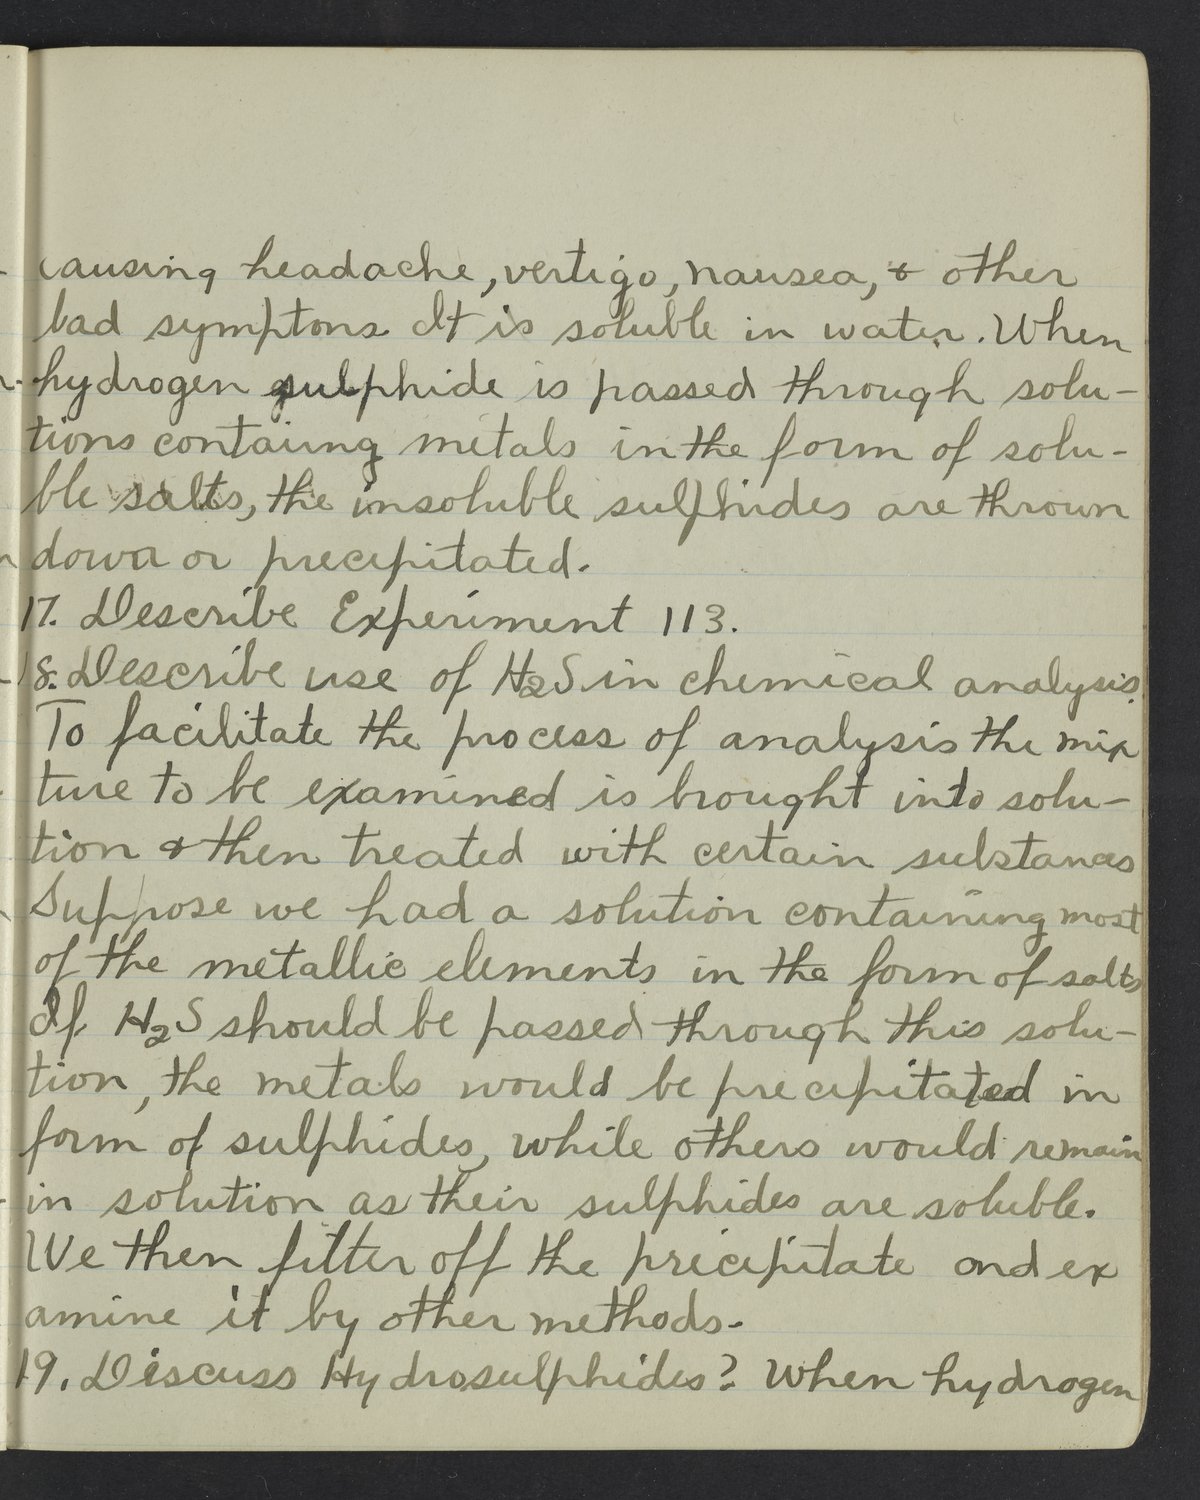 causing headache, vertigo, nausea, & other
bad symptons It is soluble in water. When
hydrogen sulphide is passed through solu-
tions containg metals in the form of solu-
ble salts, the insoluble sulphides are thrown
down or precipitated.
17. Describe Experiment 113.
18. Describe use of H2S in chemical analysis.
To facilitate the process of analysis the mix
ture to be examined is brought into solu-
tion & then treated with certain substances
Suppose we had a solution containing most
of the metallic elements in the form of salts
If H2S should be passed through this solu-
tion, the metals would be precipitated in
form of sulphides, while others would remain
in solution as their sulphides are soluble.
We then filter off the precipitate and ex
amine it by other methods.
19. Discuss Hydrosulphides? When hydrogen